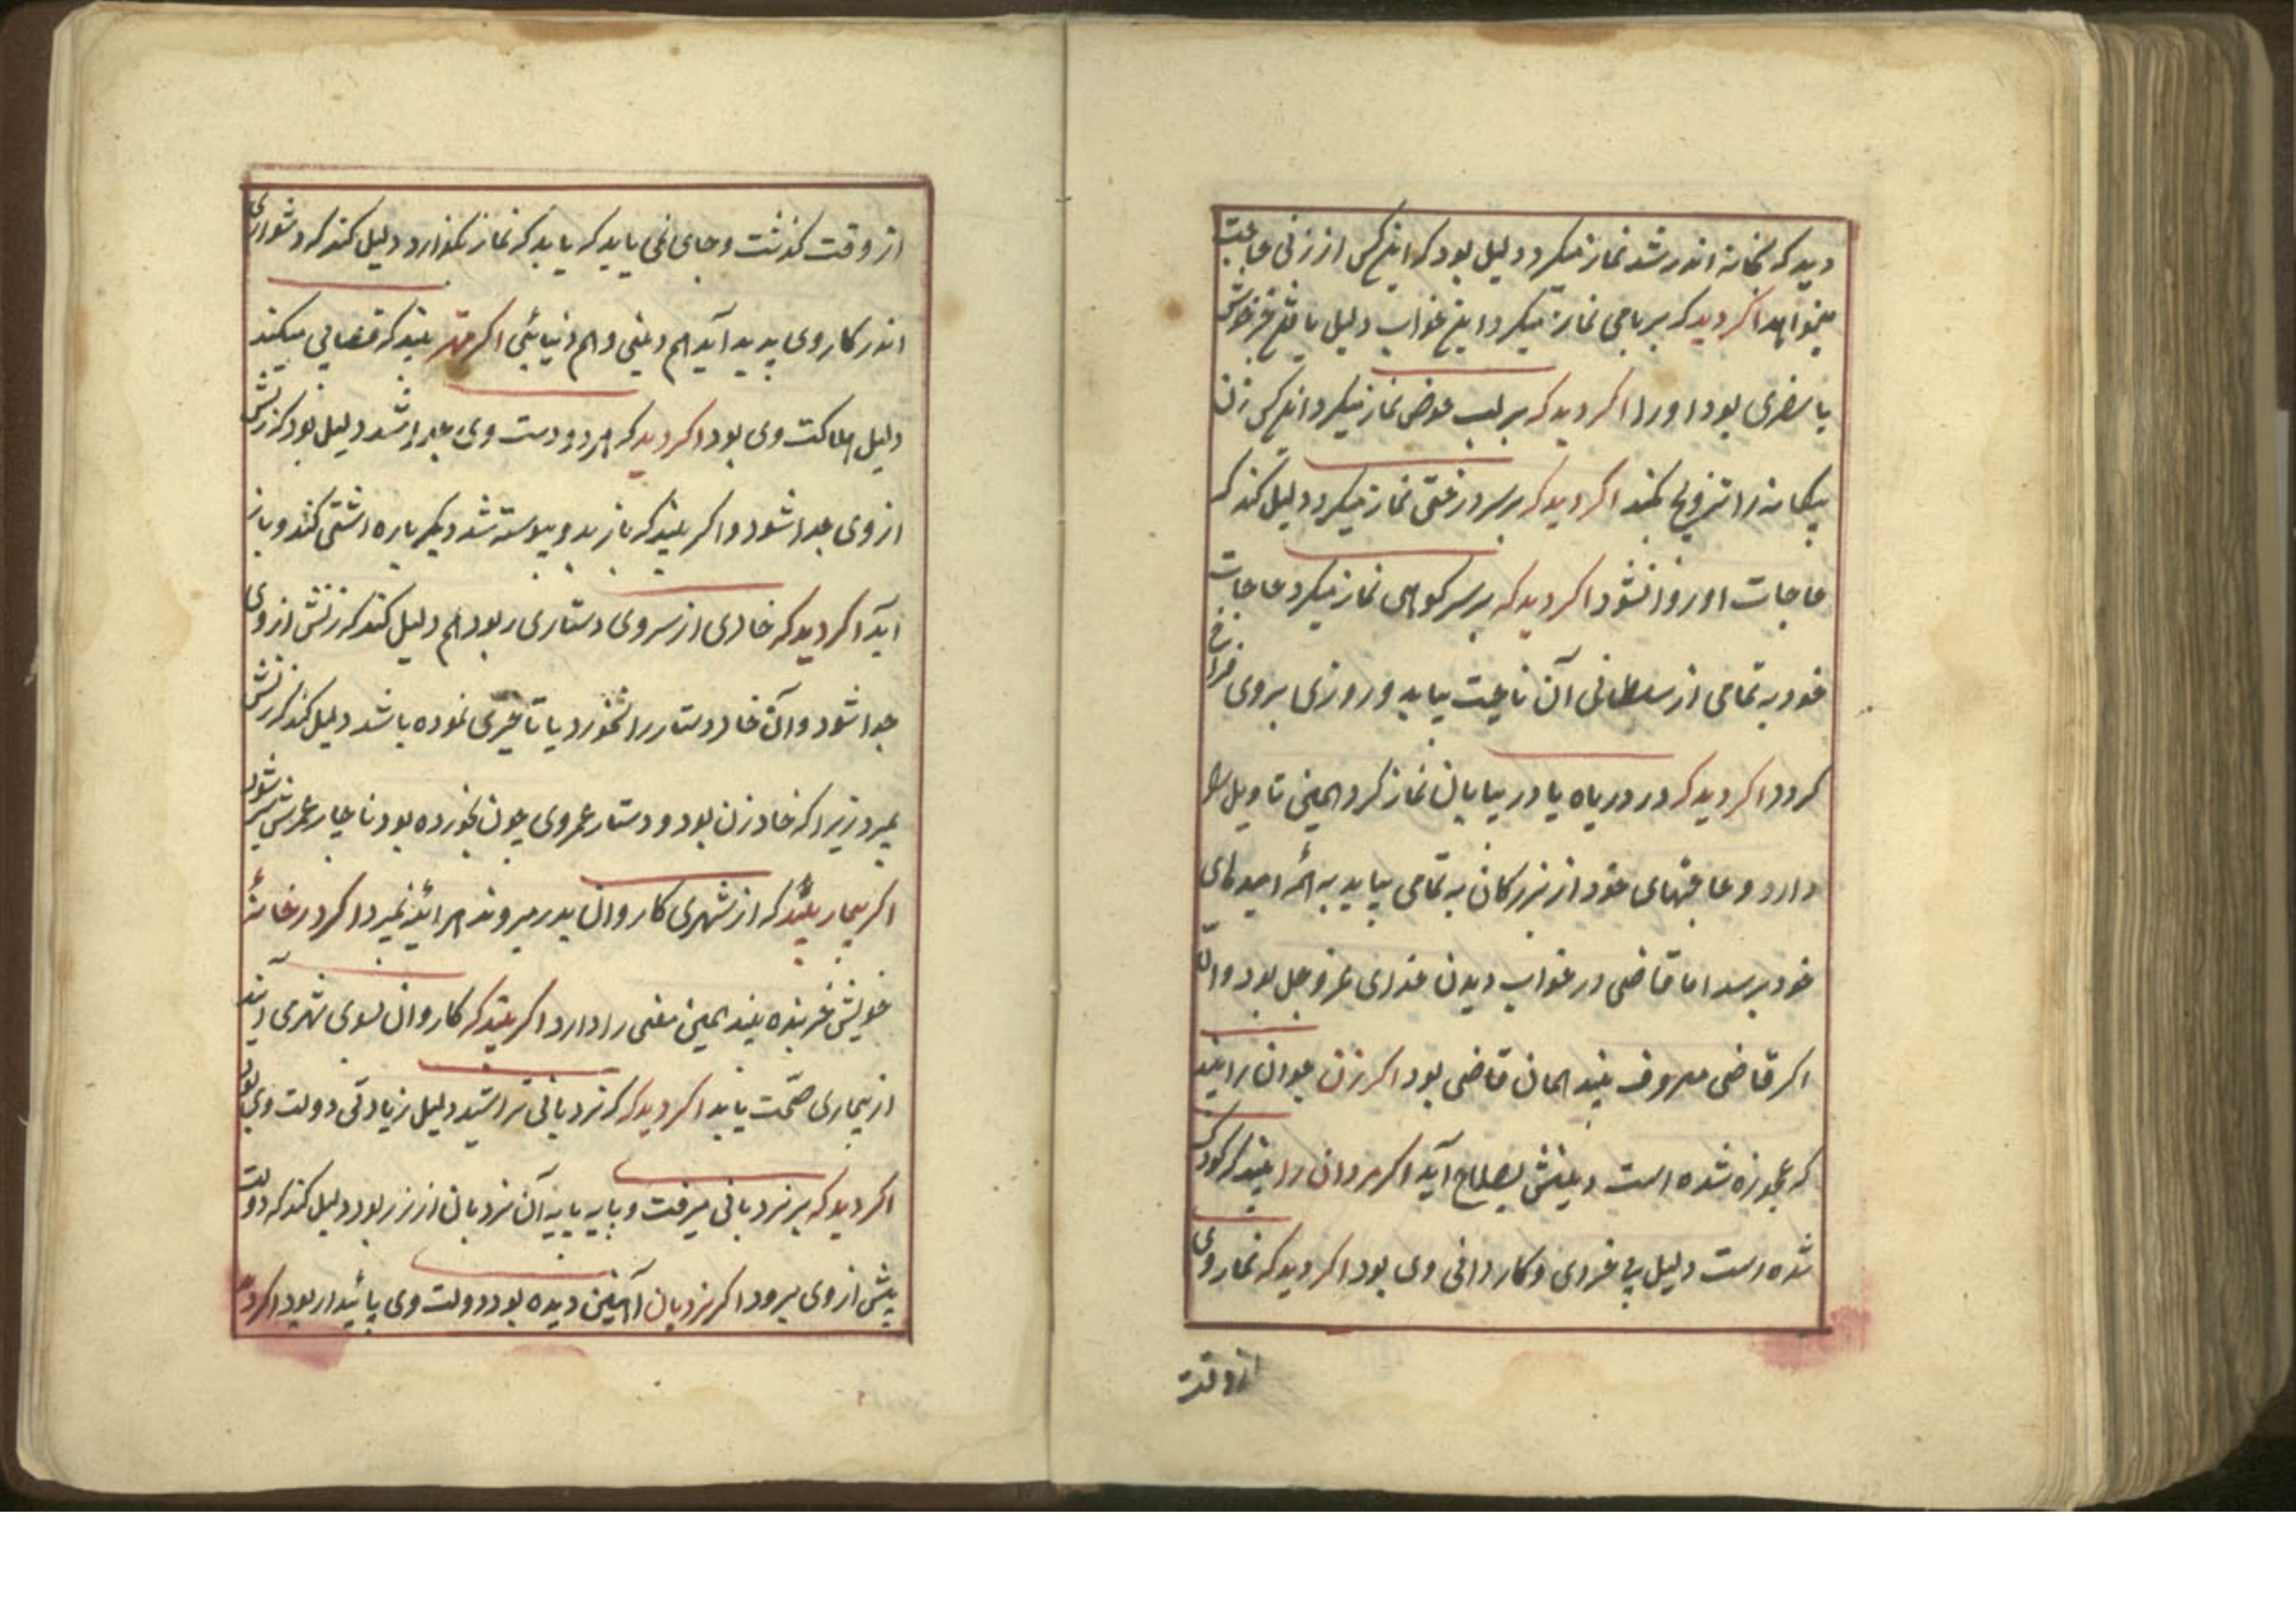 دید که بخانه اندر شد نماز میکرد دلیل بود که اینکس از زنی حاجت
میخواهد اکر دید که بر بامی نماز میکرد اینخواب دلیل
یا سفری بود او را اکر دید که بر لب حوض نماز میکرد اینکس زن
بیکانه را تزویج کند اکر دید که بر سر درختی نماز میکرد دلیل کند که
حاجات او روا نشود اکر دید که بر سر کوهی نماز میکرد حاجات
خود به تمامی از سلطانی آن ناحیت بیابد و روزی بروی فراخ
کردد اکر دید که در دریاه یا در بیابان نماز کرد همین تاویل را
دارد و حاجتهای خود از بزرکان به تمامی بیابد به همه امیدهای
خود برسد اما قاضی در خواب دیدن خدای عزوجل بود والا
اکر قاضی معروف بیند همان قاضی بود اکر زن جوان را بیند
که عجوزه شده است دینش بصلاح آید اکر مردان را بیند که کودک
شده است دلیل بی خردی و کاردانی وی بود اکر دید که نماز وی
از وقت
از وقت کذشت و جای نمی یابد که یابد که نماز بکذارد دلیل کند که دشواری
اندر کار وی پدید آید هم دینی و هم دنیائی اکر بیند که قصابی میکند
دلیل هلاکت وی بود اکر دید که هر دو دست وی جدا شد دلیل بود که زنش
از وی جدا شود و اکر بیند که باز بدو پیوسته شد دیکر باره اشتی کند و باز
آید اکر دید که خادی از سر وی دستاری ربود هم دلیل کند که زنش از وی
جدا شود و آن خاد دستار را بخورد یا تاخیری نموده باشد دلیل کند که زنش
بمیرد زیرا که خاد زن بود و دستار عمر وی چون بخورده بود ناچار عمرش بسر شود
اکر بیمار بیند که از شهری کاروان بدر میروند هر آئنه بمیرد اکر در خانهٔ
خویش خربنده بیند همین معنی را دارد اکر بیند که کاروان بسوی شهری آیند
از بیماری صحّت یابد اکر دید که که نردبانی تراشید دلیل زیادتی دولت وی بود
اکر دید که بر نردبانی میرفت و پایه پایه آن نردبان از زر بود دلیل کند که دولت
پیش از وی برود اکر نردبان آهنین دیده بود دولت وی پائیدار بود